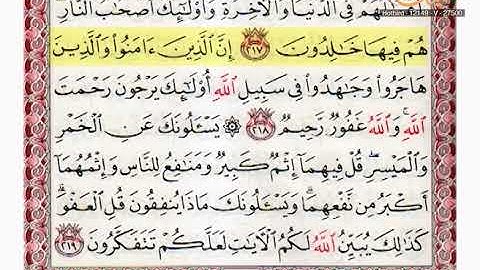 Hotbird : 12149 - V - 27500
فِى الدُّنْيَا وَالْآخِرَةِ وَأُوْلَٰٓئِكَ أَصْحَٰبُ النَّارِ
هُمْ فِيهَا خَٰلِدُونَ ٢١٧ إِنَّ الَّذِينَ ءَامَنُوا وَالَّذِينَ
هَاجَرُوا وَجَٰهَدُوا فِى سَبِيلِ اللَّهِ أُوْلَٰٓئِكَ يَرْجُونَ رَحْمَتَ
اللَّهِ وَاللَّهُ غَفُورٌ رَّحِيمٌ ٢١٨ ۞ يَسْـَٔلُونَكَ عَنِ الْخَمْرِ
وَالْمَيْسِرِ قُلْ فِيهِمَآ إِثْمٌ كَبِيرٌ وَمَنَٰفِعُ لِلنَّاسِ وَإِثْمُهُمَآ
أَكْبَرُ مِن نَّفْعِهِمَا وَيَسْـَٔلُونَكَ مَاذَا يُنفِقُونَ قُلِ الْعَفْوَ
كَذَٰلِكَ يُبَيِّنُ اللَّهُ لَكُمُ الْآيَٰتِ لَعَلَّكُمْ تَتَفَكَّرُونَ ٢١٩